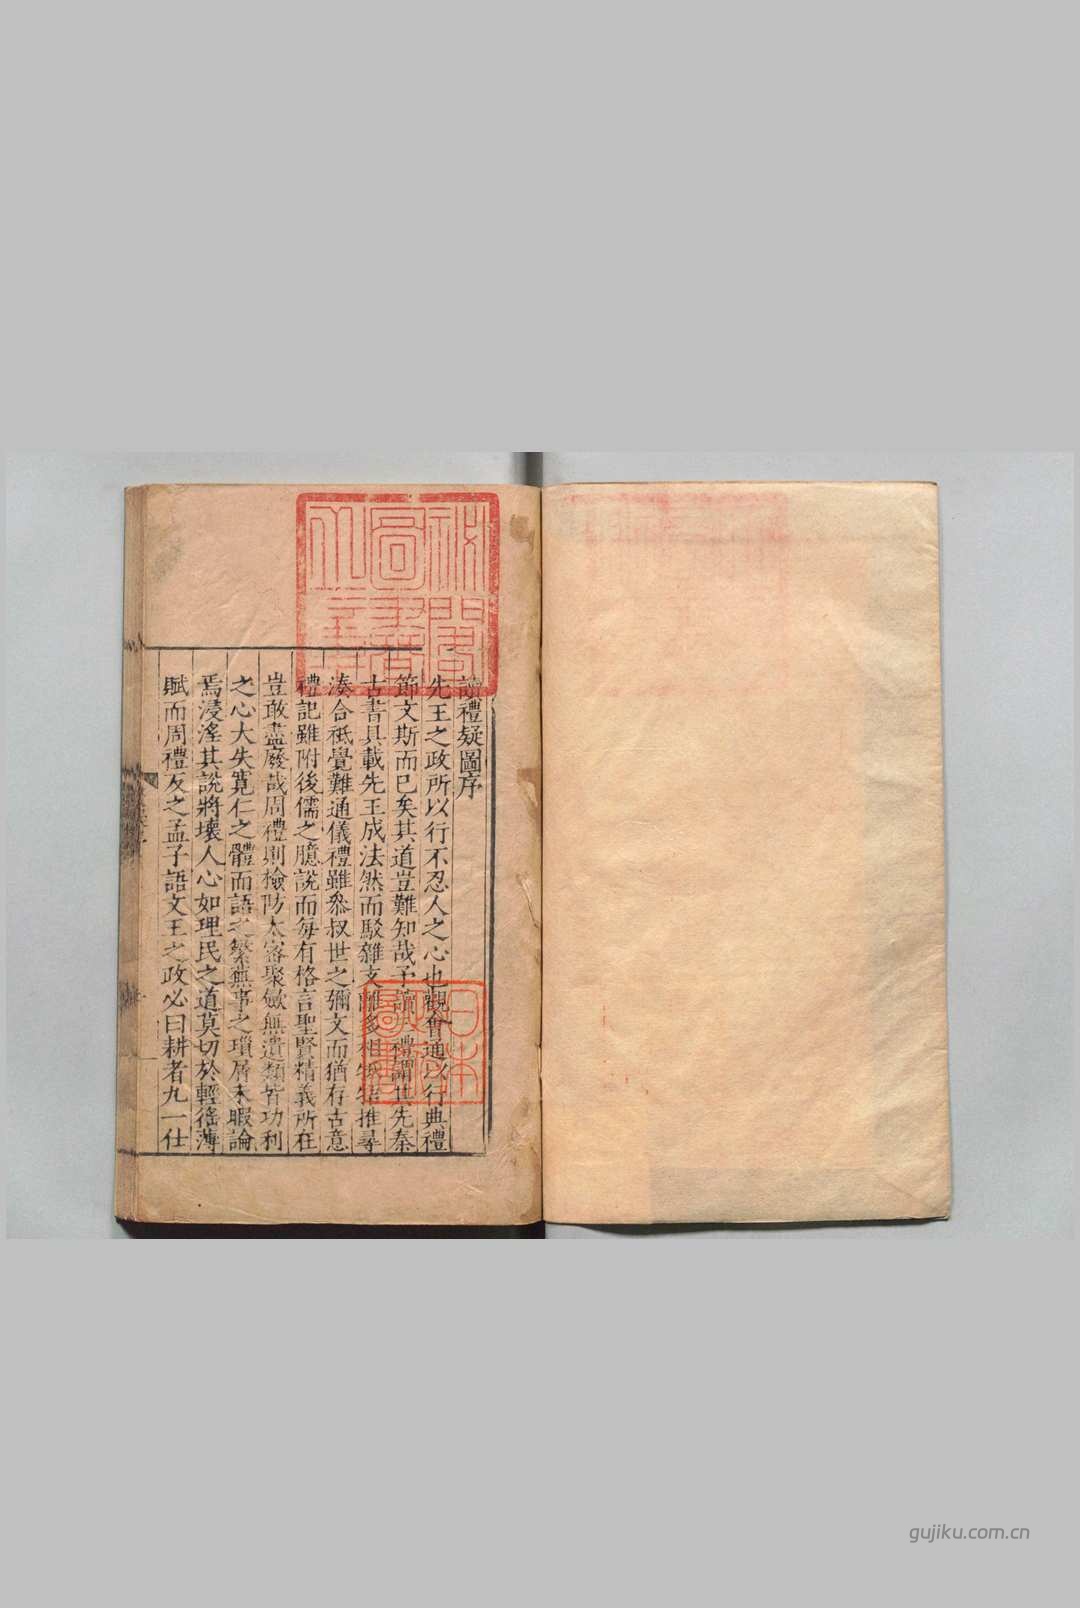 讀禮疑圖序
先王之政所以行不忍人之心也觀會通以行典禮
節文斯而已矣其道豈難知哉予讀禮謂其先秦
古書具載先王成法然而駁雜支離多相推尋
湊合祗覺難通儀禮雖叅叔世之彌文而猶存古意
禮記雖附後儒之臆說而每有格言聖賢精義所在
豈敢盡廢哉周禮則檢防太密聚歛無遺類皆功利
之心大失寬仁之體而語之繁蕪事之瑣屑未暇論
焉浸淫其說將壞人心如理民之道莫切於輕徭薄
賦而周禮反之孟子語文王之政必曰耕者九一仕
秘閣
圖書
之章
日本
政府
圖書
gujiku.com.cn